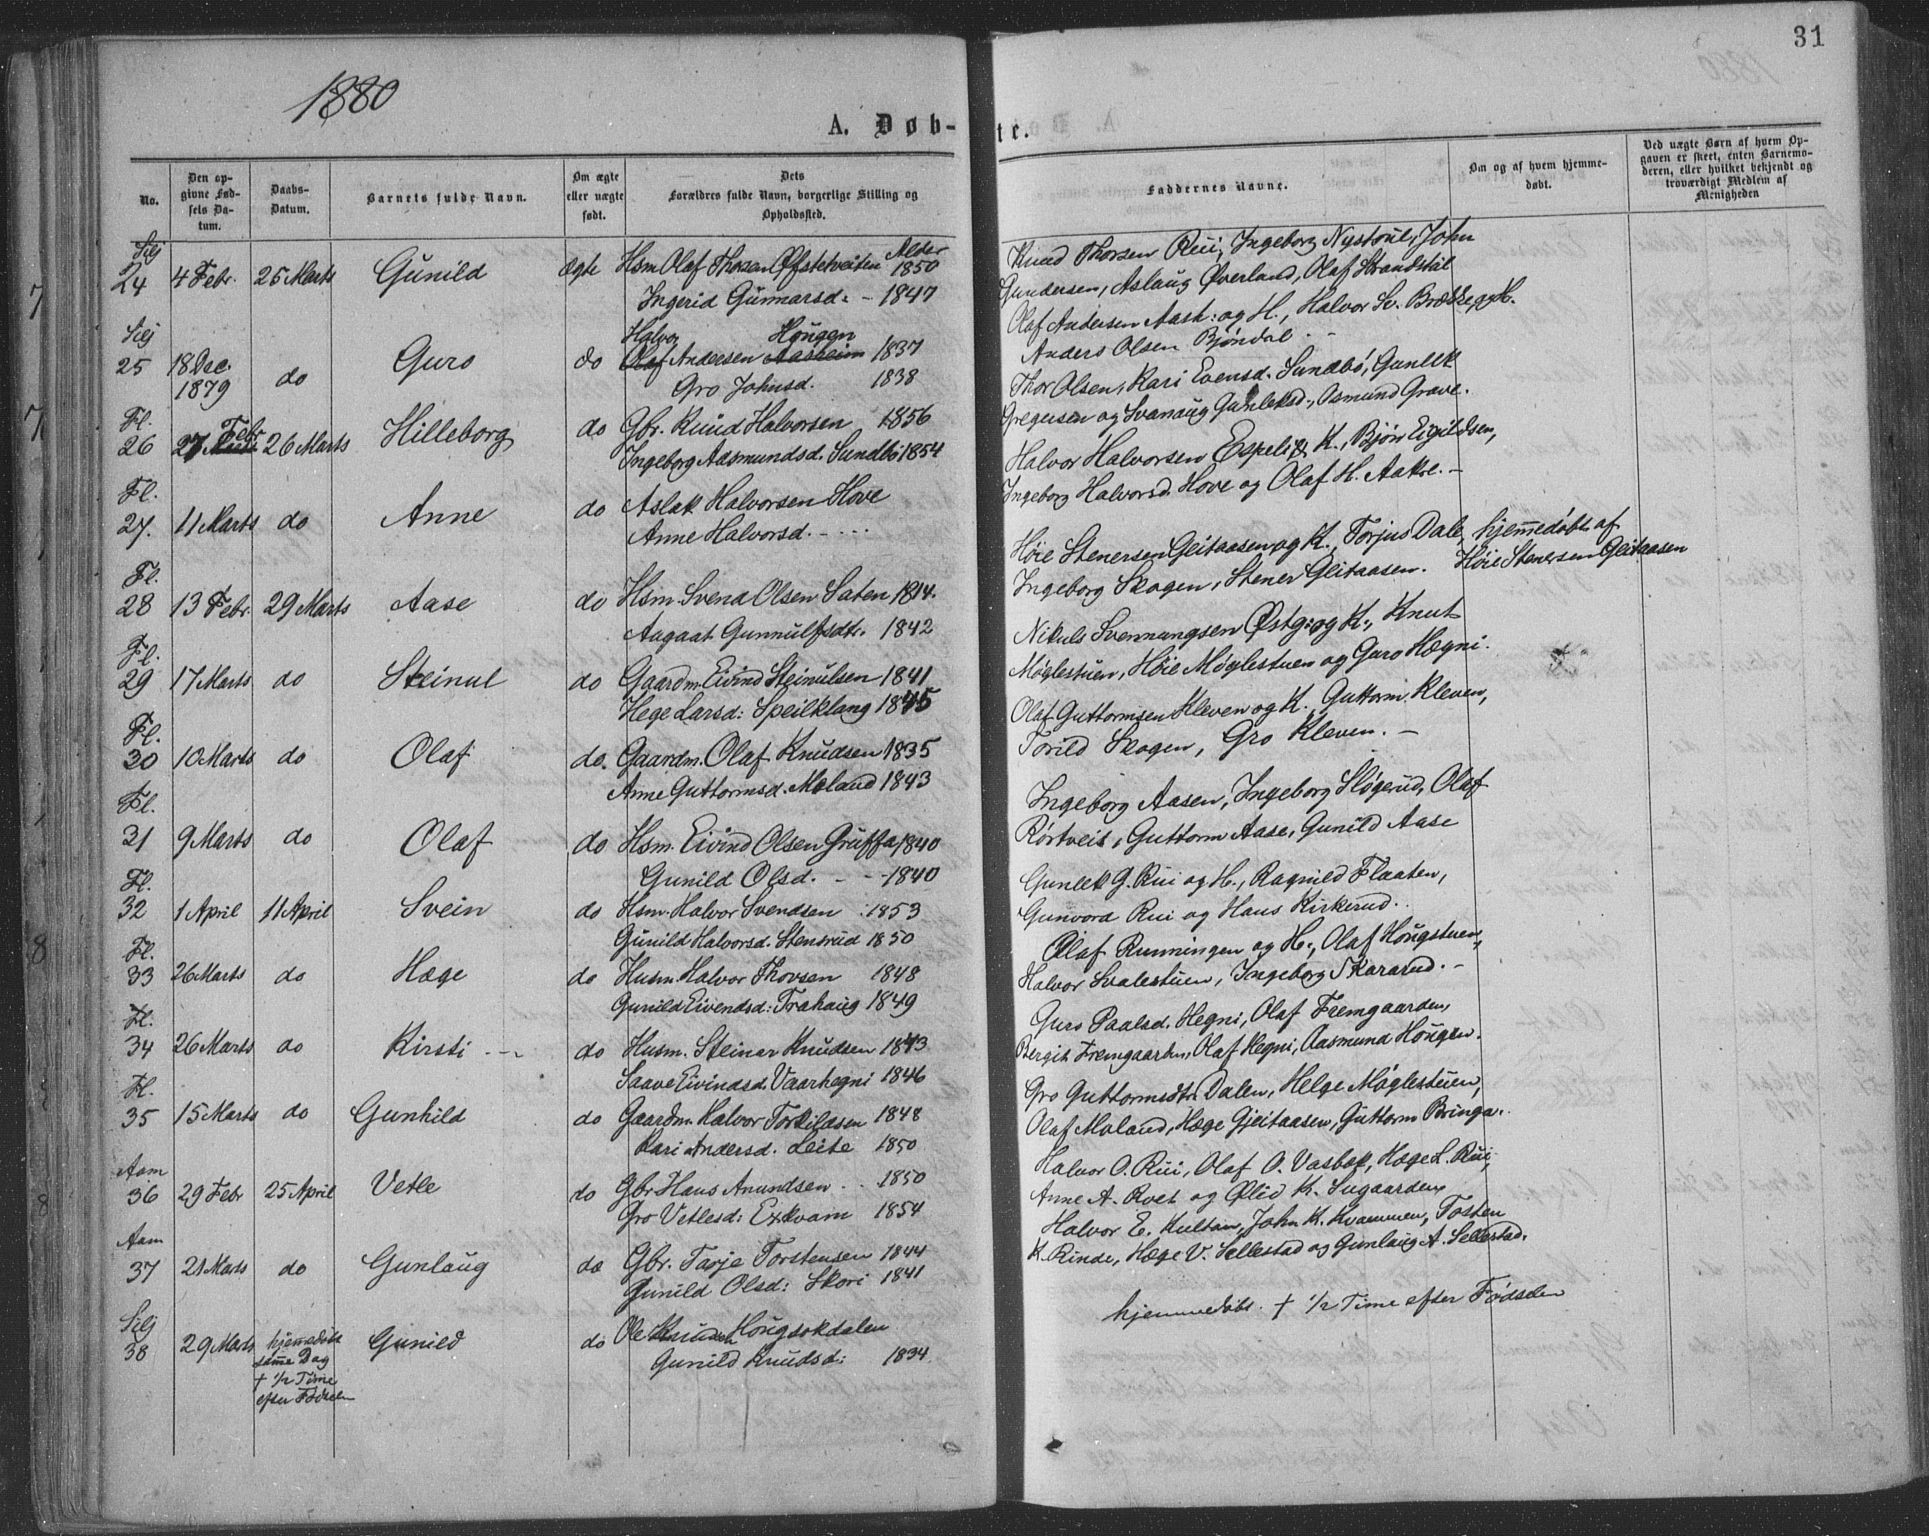 31
1880
A. Døb-
te.
No.
Den op-
givne Fød-
sels Da-
tum.
Daabs-
Datum.
Barnets fulde Navn.
Om ægte
eller uægte
født.
Dets
Forældres fulde Navn, borgerlige Stilling og
Opholdssted.
Faddernes Navne.
Om og af hvem hjemme-
døbt.
Ved uægte Børn af hvem Op-
gaven er skeet, enten Barnemo-
deren, eller hvilket bekjendt og
troværdigt Medlem af
Menigheden
Silj Alder
24 4 Febr. 25 Marts Gunild ægte Hsm Olaf Thorsen Øfstetveiten 1850
Ingerid Gunnarsd: - 1847
Knud Thorsen Rui, Ingeborg Nystøul, John
Gundersen, Aslaug Øverland, Olaf Strandstøl
Silj Halvor Hougen
25 18 Dec. do Guro do Olaf Andersen Aasheim 1837
1879 Gro Johnsd. 1838
Olaf Andersen Aash: og H., Halvor Sv. Brække, og H.
Anders Olsen Bjøndal - -
Fl. Febr
26 27 26 Marts Hilleborg do Gbr. Knud Halvorsen 1856
Ingeborg Aasmundsd. Sundbö 1854
Thor Olsen, Kari Evensd. Sundbö, Gunlek
Gregusen og Svanaug Gunleksd., Osmund Grave.
Fl.
27. 11 Marts do Anne do Aslak Halvorsen Hove
Anne Halvorsd. - - - -
Halvor Halvorsen Espelid, K., Bjørn Eigildsen,
Ingeborg Halvorsd. Hove og Olaf H. Aakre. -
Fl.
28 13 Febr. 29 Marts Aase do Hsm. Svend Olsen Saten 1814.
Aagaat Gunnulfsdtr. 1842
Höie Stenersen Gleitaasen og K., Torjus Dale, hjemmedöbt af
Ingeborg Skogen, Stener Gleitaasen. Höie Stenersen Gleitaasen
Fl.
29 17 Marts do Steinul do Gaardm. Eivind Steinulsen 1841
Hege Larsd: Speilklang 1845
Nikuls Svennungsen Østg: og K., Knut
Møglestuen, Höie Møglestuen og Guro Hægni.
Fl.
30 10 Marts do Olaf do. Gaardm. Olaf Knudsen 1835
Anne Guttormsd. Moland 1843
Olaf Guttormsen Kleven og K., Guttorm Kleven,
Torild Skogen, Gro Kleven. -
Fl.
31 9 Marts do Olaf do Hsm. Eivind Olsen Gruffa 1840
Gunild Olsd. - - - 1840
Ingeborg Aasen, Ingeborg Slögerud, Olaf
Rørtveit, Guttorm Aase, Gunild Aase
Fl.
32 1 April 11 April Svein do Hsm. Halvor Svendsen 1853
Gunild Halvorsd. Stensrud 1850
Gunlek G. Rui og H., Ragnild Flaaten,
Gunvord Rui og Hans Kirkerud..
Fl.
33 26 Marts do Hæge do Husm. Halvor Thovsen 1848
Gunild Eivendsd: Trahaug 1849
Olaf Runningen og H., Olaf Hougstuen,
Halvor Svalestuen, Ingeborg Skararud. -
Fl.
34 26 Marts do Kirsti - - do Husm. Steinar Knudsen 1843
Saave Eivindsd. Vaarhegni 1846
Guro Paalsd. Hegni, Olaf Fremgaarden,
Bergit Fremgaarden, Olaf Hegni, Aasmund Hougen.
Fl.
35 15 Marts do Gunhild do Gaardm. Halvor Torkildsen 1848
Kari Andersd. Leite 1850
Gro Guttormsdtr. Dalen, Helge Møglestuen,
Olaf Moland, Hæge Gjeitaasen, Guttorm Bringa.
Aam
36 29 Febr 25 April Vetle do Gbr. Hans Anundsen - - 1850
Gro Vetlesd: Exkvam 1854
Halvor O. Rui, Olaf O. Vasbøk, Hæge L. Rui,
Anne A. Roet og Ølid K. Sugaarden
Aam
37 21 Marts do Gunlaug do Gbr. Tarje Torstensen 1844
Gunild Olsd: Skori 1841
Halvor E. Kultan, John K. Kvammen, Tosten
K. Rinde, Hæge V. Sellestad og Gunlaug A. Sellestad.
Silj
38 29 Marts hjemmedöbt Gunild do Ole Knudsen Hougsokdalen
samme Dag Gunild Knudsd: 1834.
+ 1/2 Time
efter Födselen
hjemmedöbt. + 1/2 Time efter Födselen